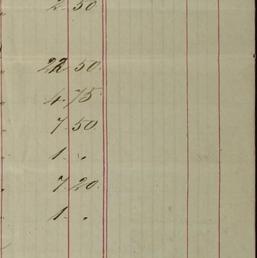 2.50
22.50
4.75
7.50
1 "
7.20
1 "